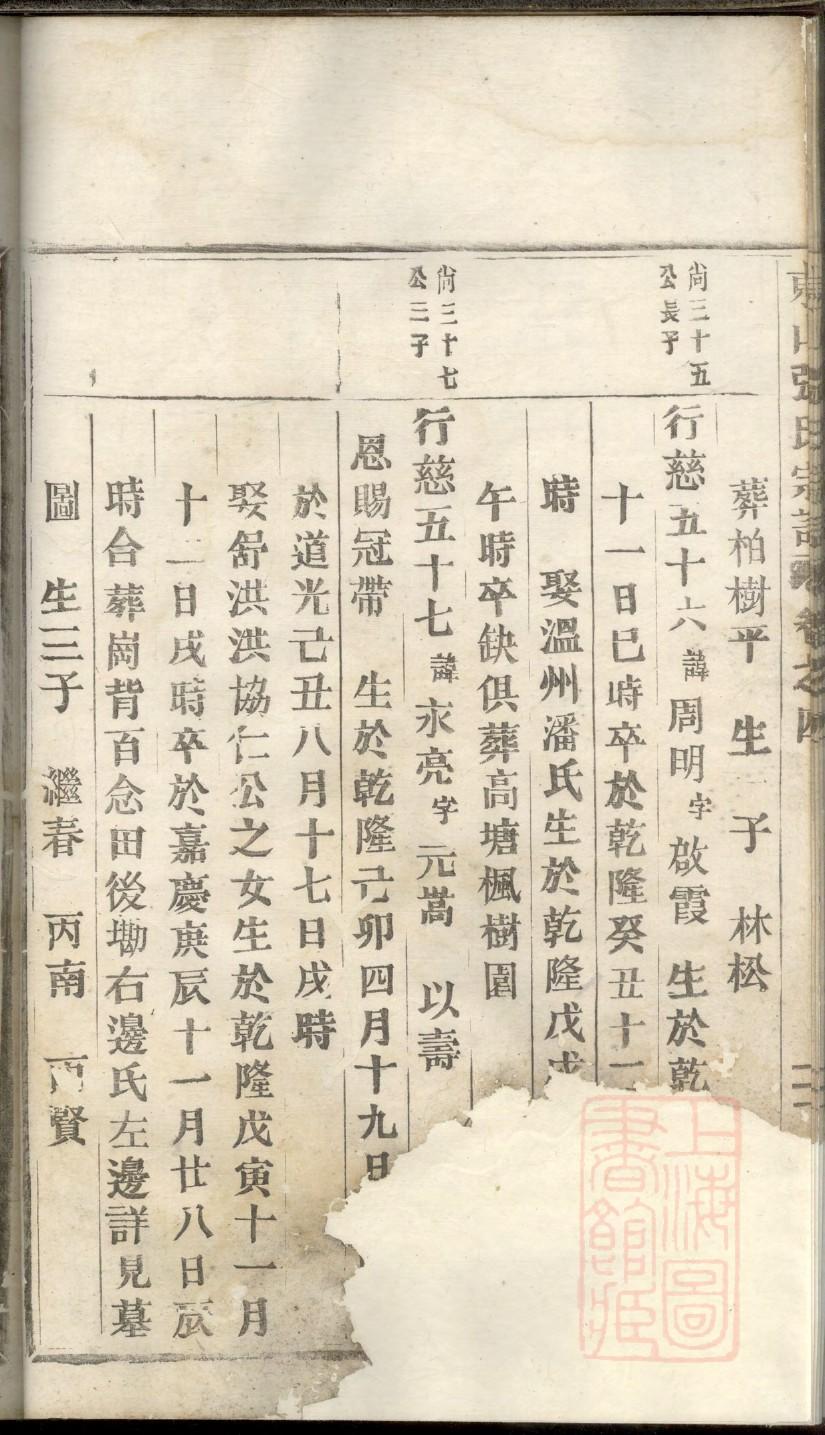 張氏宗譜 卷之四
葬柏樹平 生一子 林松
尚三十五
公長子
行慈五十六 諱 周明 字 啟霞 生於乾
十一日巳時卒於乾隆癸丑十
時 娶溫州潘氏生於乾隆戊戌
午時卒缺俱葬高塘楓樹園
尚三十七
公三子
行慈五十七 諱 永亮 字 元嵩 以壽
恩賜冠帶 生於乾隆己卯四月十九日
於道光己丑八月十七日戌時
娶舒洪洪協仁公之女生於乾隆戊寅十一月
十二日戌時卒於嘉慶庚辰十一月廿八日辰
時合葬崗背百念田後墈右邊氏左邊詳見墓
圖 生三子 繼春 丙南 丙賢
上海圖書館藏